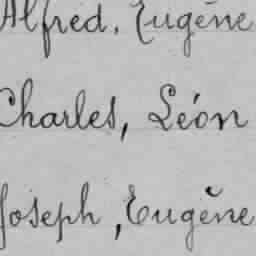 Alfred, Eugène
Charles, Léon
Joseph, Eugène